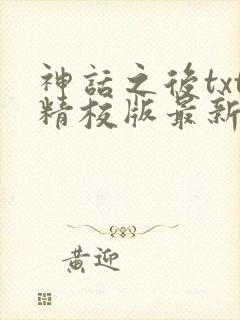 神話之後txt
精校版最新
黃迎